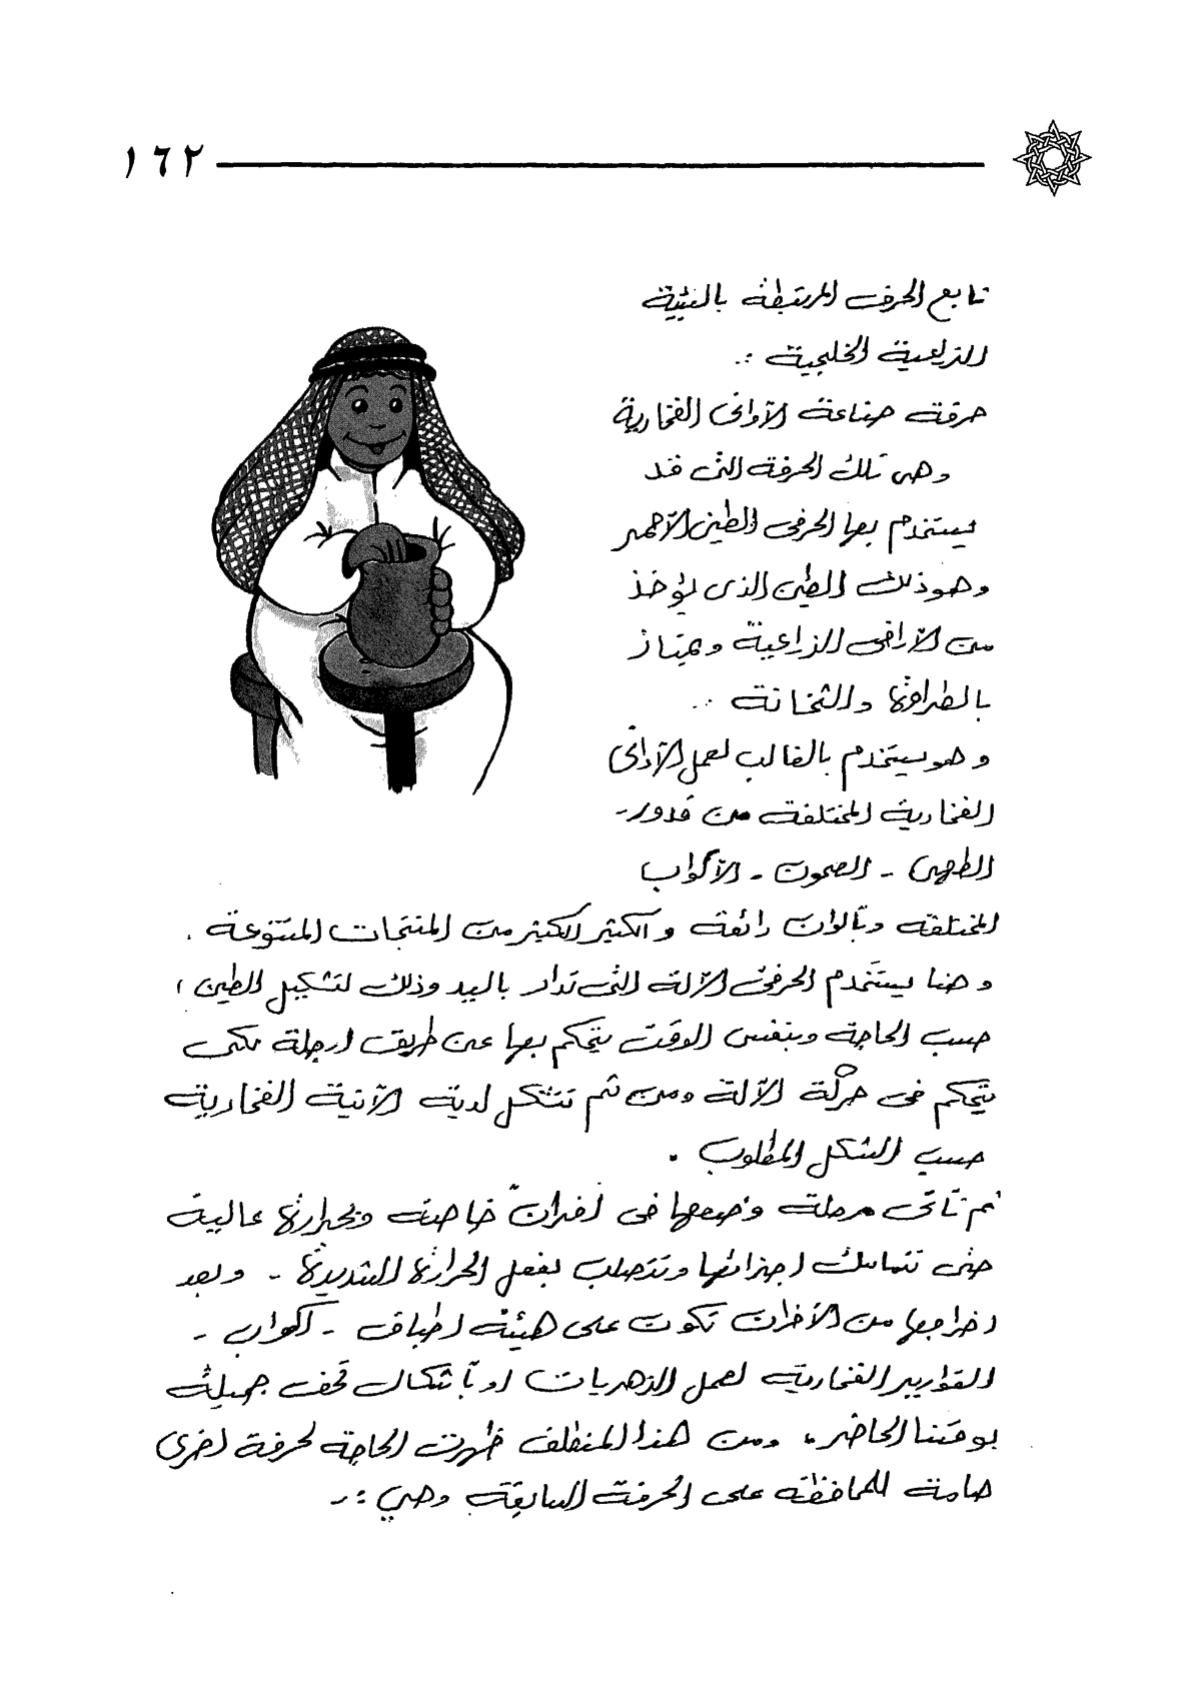 ١٦٢
تابع الحرف المرتبطة بالبيئة
الزراعية الخليجية :.
حرفة صناعة الأوانى الفخارية
وهى تلك الحرفة التى قد
يستخدم بها الحرفى الطين الأحمر
وهو ذلك الطين الذى يؤخذ
من الأراضى الزراعية ويمتاز
بالطراوة والثخانة .
وهو يستخدم بالغالب لعمل الأوانى
الفخارية المختلفة من قدور -
الطهى - الصحون - الأكواب
المختلفة وبألوان رائعة والكثير الكثير من المنتجات المتنوعة .
وهنا يستخدم الحرفى الآلة التى تدار باليد وذلك لتشكيل الطين ،
حسب الحاجة وبنفس الوقت يتحكم بها عن طريق ارجلة لكى
يتحكم فى حركة الآلة ومن ثم تتشكل لدية الآنية الفخارية
حسب الشكل المطلوب .
ثم تأتى مرحلة وضعها فى أفران خاصة وبحرارة عالية
حتى تتماسك اجزائها وتتصلب بفعل الحرارة الشديدة - وبعد
اخراجها من الأفران تكون على هيئة اطباق - أكواب -
القوارير الفخارية لعمل الزهريات او بأشكال تحف جميلة
بوقتنا الحاضر، ومن هذا المنطلف ظهرت الحاجة لحرفة اخرى
هامة للمحافظة على الحرفة السابقة وهي :-